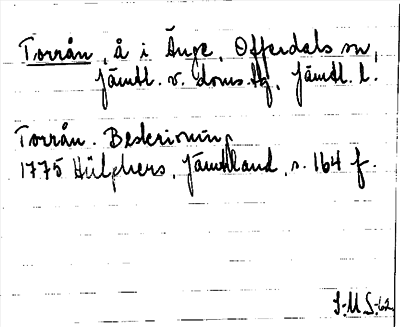 Torrån, å i Änge, Offerdals sn,
Jämtl. v. doms. tg, Jämtl. l.
Torrån. Beskrivning
1775 Hülphers, Jämtland, s. 164 f.
S.M.S.-62